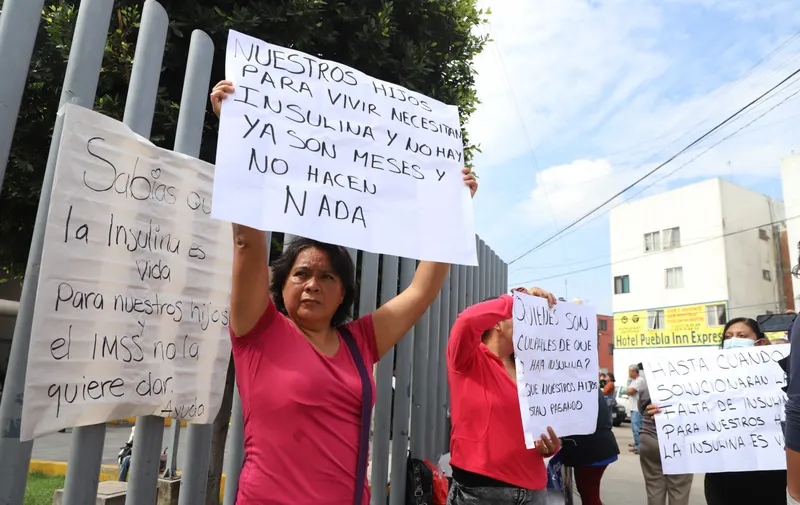 Sabías que
la Insulina es
vida
Para nuestros hijos
y
el IMSS no la
quiere dar.
Ayuda
NUESTROS HIJOS
PARA VIVIR NECESITAN
INSULINA Y NO HAY
YA SON MESES Y
NO HACEN
NADA
QUIENES SON
CULPABLES DE QUE
NO HAY INSULINA?
QUE NUESTROS HIJOS
ESTAN PAGANDO
Hotel Puebla Inn Express
HASTA CUANDO
SOLUCIONARAN LA
FALTA DE INSULINA
PARA NUESTROS
LA INSULINA ES